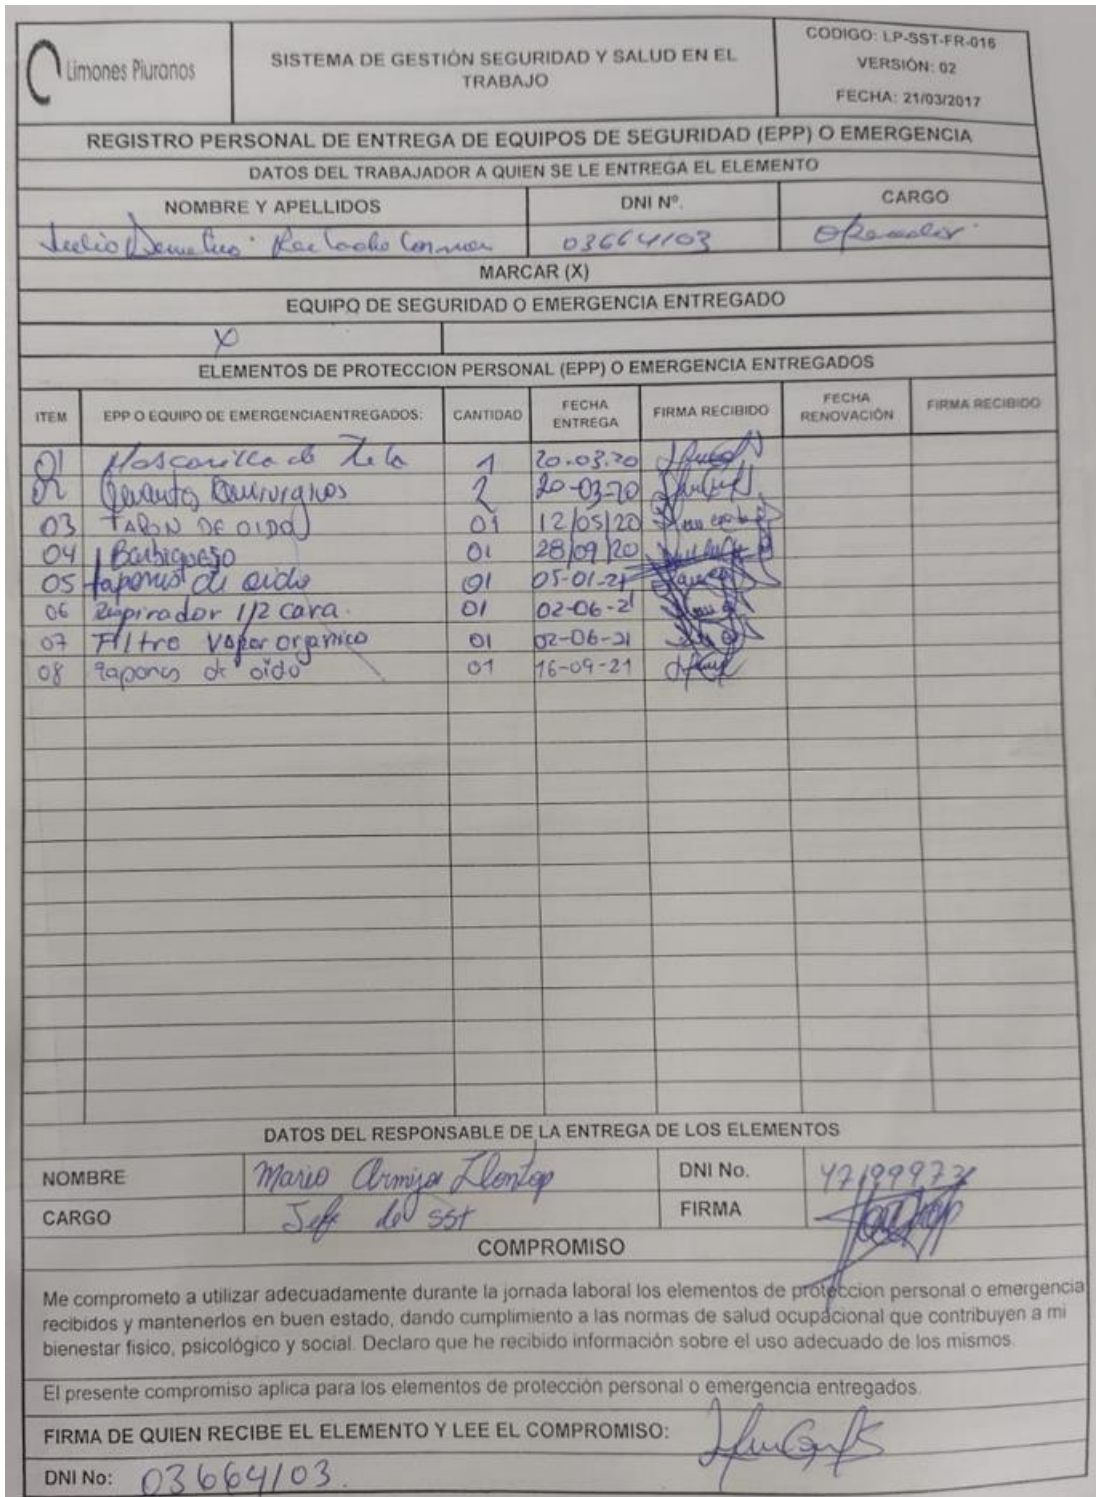 Limones Piuranos
SISTEMA DE GESTIÓN SEGURIDAD Y SALUD EN EL
TRABAJO
CODIGO: LP-SST-FR-016
VERSIÓN: 02
FECHA: 21/03/2017
REGISTRO PERSONAL DE ENTREGA DE EQUIPOS DE SEGURIDAD (EPP) O EMERGENCIA
DATOS DEL TRABAJADOR A QUIEN SE LE ENTREGA EL ELEMENTO
NOMBRE Y APELLIDOS DNI Nº. CARGO
Julio 03664103 Operador
MARCAR (X)
EQUIPO DE SEGURIDAD O EMERGENCIA ENTREGADO
X
ELEMENTOS DE PROTECCION PERSONAL (EPP) O EMERGENCIA ENTREGADOS
ITEM EPP O EQUIPO DE EMERGENCIAENTREGADOS: CANTIDAD FECHA ENTREGA FIRMA RECIBIDO FECHA RENOVACIÓN FIRMA RECIBIDO
01 Mascarilla de Tela 1 20-03-20
02 Guantes 2 20-03-20
03 TAPON DE OIDO 01 12/05/20
04 Barbiquejo 01 28/09/20
05 tapones de oido 01 05-01-21
06 Respirador 1/2 cara. 01 02-06-21
07 Filtro vapor organico 01 02-06-21
08 tapones de oido 01 16-09-21
DATOS DEL RESPONSABLE DE LA ENTREGA DE LOS ELEMENTOS
NOMBRE Mario Armijos Llontop DNI No.
CARGO Jefe de SST FIRMA
COMPROMISO
Me comprometo a utilizar adecuadamente durante la jornada laboral los elementos de proteccion personal o emergencia
recibidos y mantenerlos en buen estado, dando cumplimiento a las normas de salud ocupacional que contribuyen a mi
bienestar fisico, psicológico y social. Declaro que he recibido información sobre el uso adecuado de los mismos.
El presente compromiso aplica para los elementos de protección personal o emergencia entregados.
FIRMA DE QUIEN RECIBE EL ELEMENTO Y LEE EL COMPROMISO:
DNI No: 03664103.